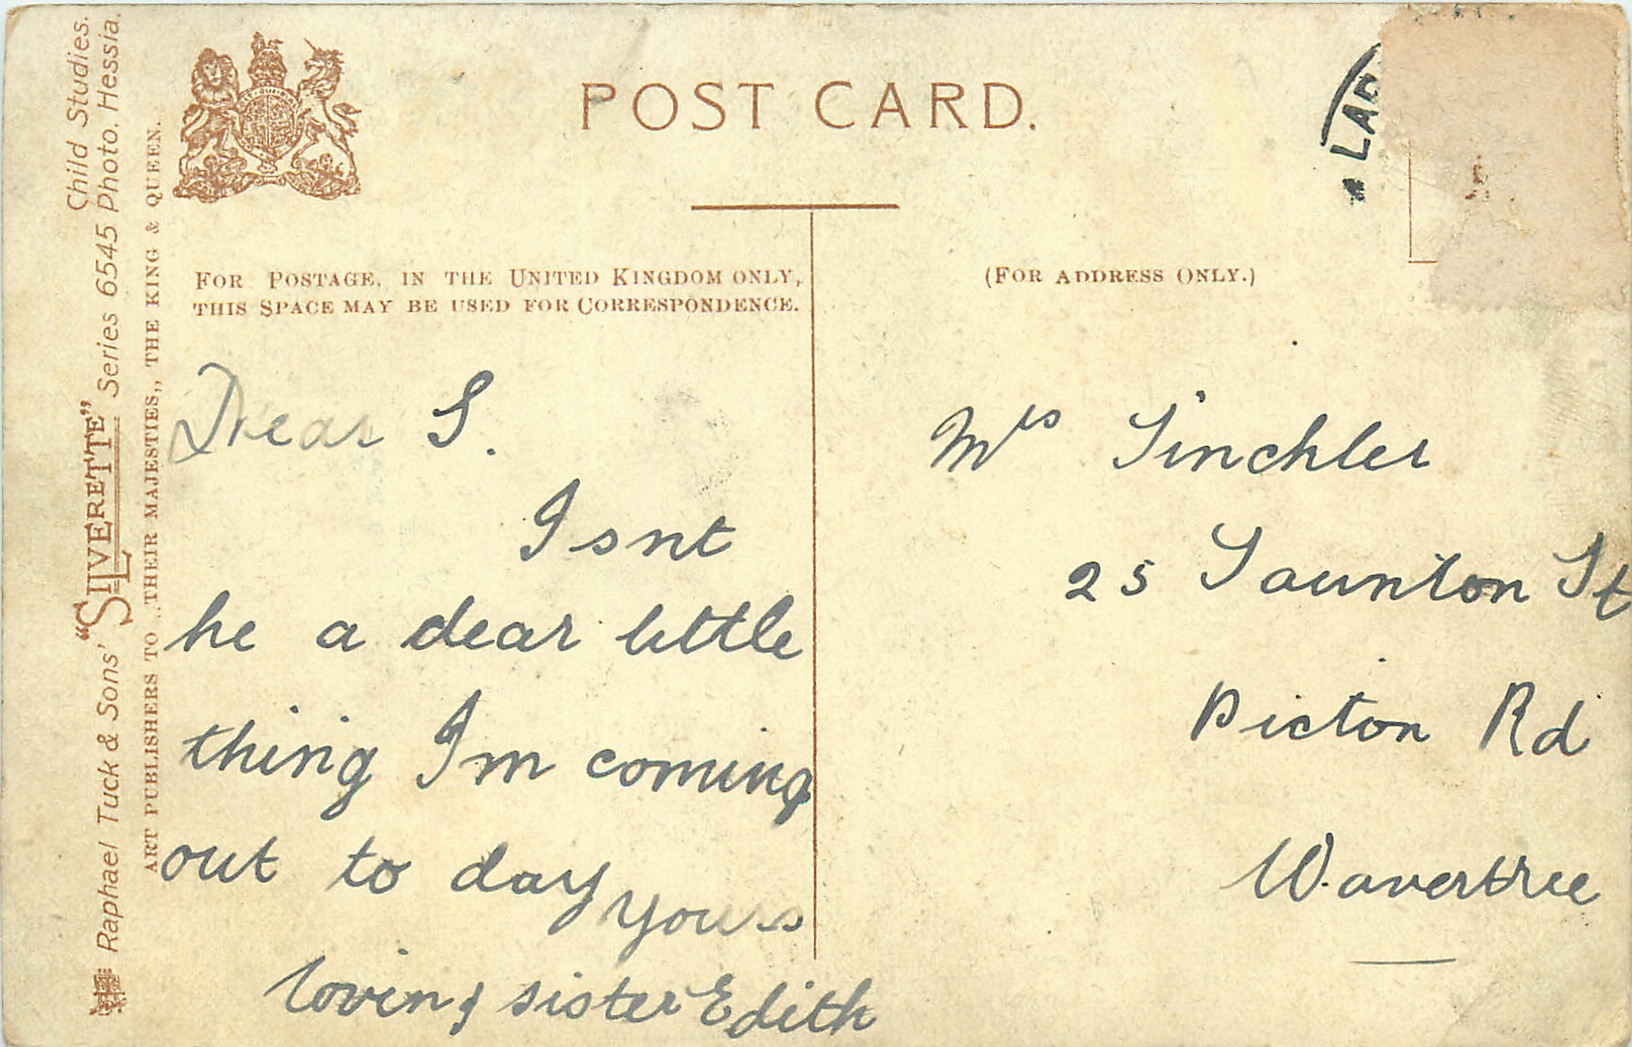 POST CARD.
FOR POSTAGE, IN THE UNITED KINGDOM ONLY,
THIS SPACE MAY BE USED FOR CORRESPONDENCE.
(FOR ADDRESS ONLY.)
Dear S.
Isnt
he a dear little
thing Im coming
out to day yours
loving sister Edith
Mrs
25 Taunton St
Picton Rd
Wavertree
Raphael Tuck & Sons' "SILVERETTE" Series 6545 Photo. Hessia.
Child Studies.
ART PUBLISHERS TO THEIR MAJESTIES, THE KING & QUEEN.